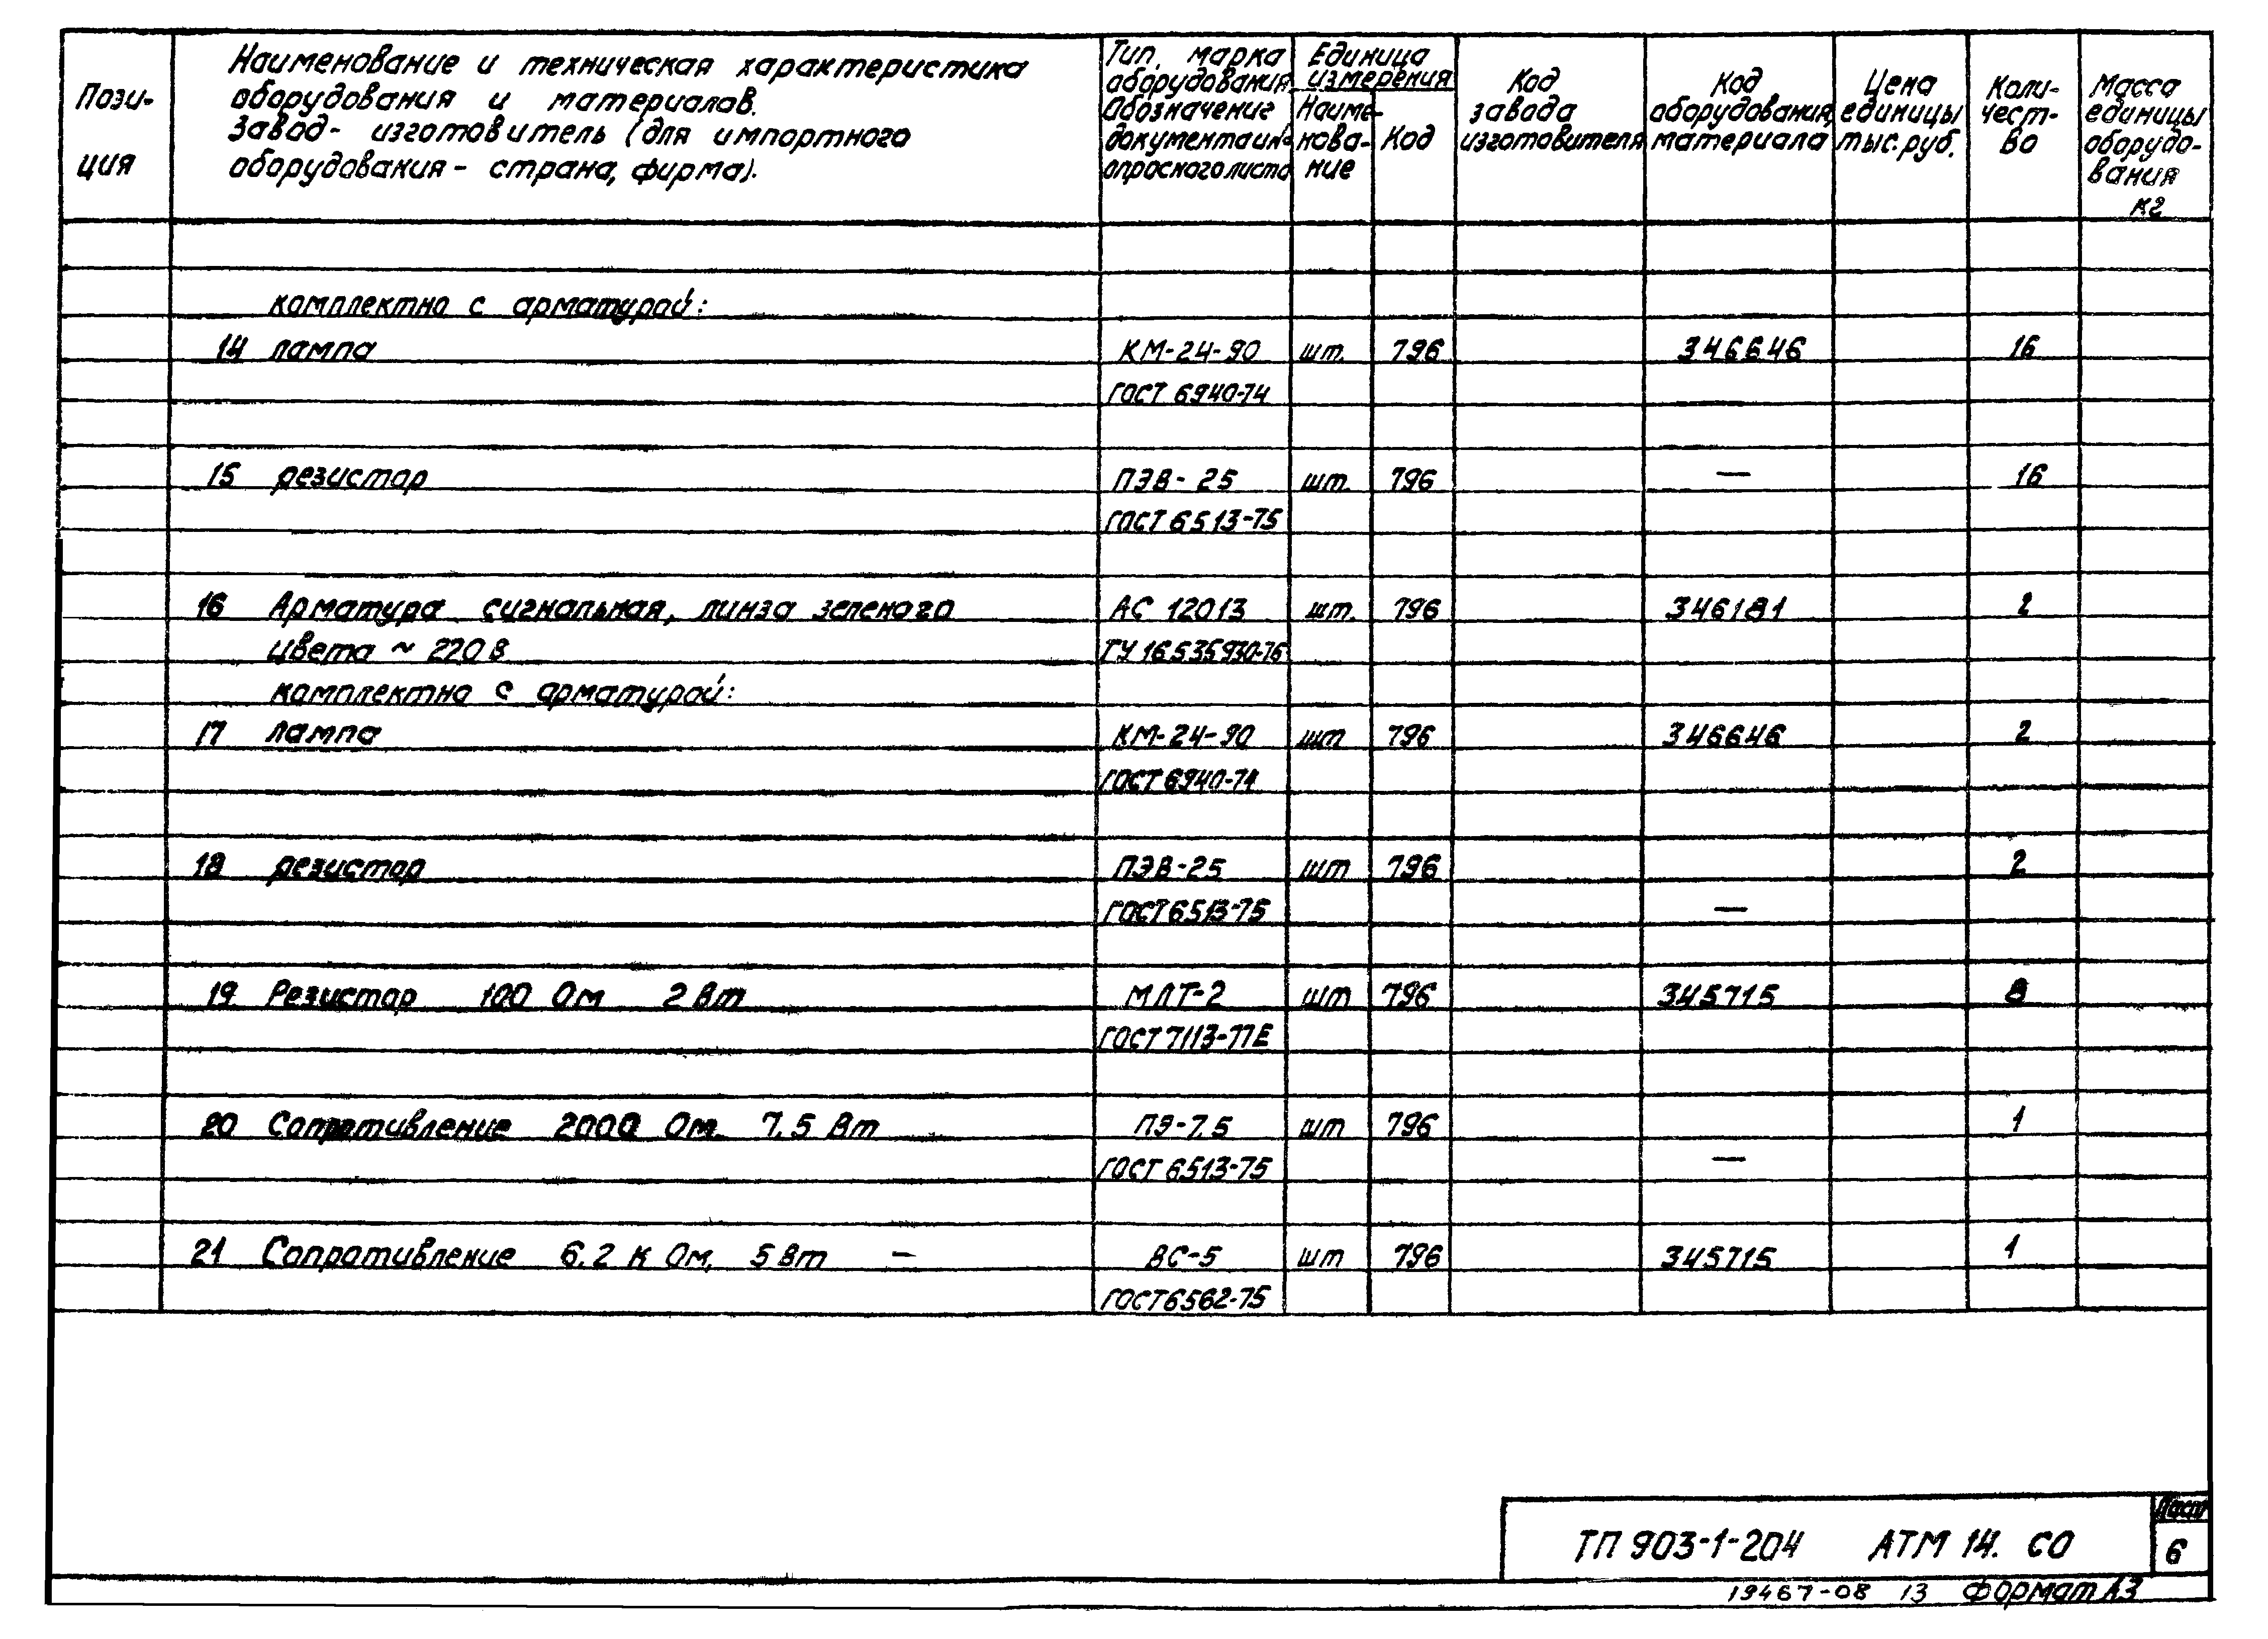 Пози-
ция
Наименование и техническая характеристика
оборудования и материалов.
Завод- изготовитель (для импортного
оборудования - страна, фирма).
Тип, марка
оборудования
Обозначение
документа и №
опросного листа
Единица
измерения
Наиме-
нова-
ние
Код
Код
завода
изготовителя
Код
оборудования,
материала
Цена
единицы
тыс. руб.
Коли-
чест-
во
Масса
единицы
оборудо-
вания
кг
комплектно с арматурой:
14 лампа КМ-24-90 шт. 796 346646 16
ГОСТ 6940-74
15 резистор ПЭВ- 25 шт. 796 — 16
ГОСТ 6513-75
16 Арматура сигнальная, линза зеленого АС 12013 шт. 796 346181 2
цвета ~ 220 В ТУ 16.535930-76
комплектно с арматурой:
17 лампа КМ-24-90 шт 796 346646 2
ГОСТ 6940-74
18 резистор ПЭВ-25 шт 796 2
ГОСТ 6513-75 —
19 Резистор 100 Ом 2 Вт МЛТ-2 шт 796 345715 8
ГОСТ 7113-77Е
20 Сопротивление 2000 Ом. 7.5 Вт ПЭ-7.5 шт 796 1
ГОСТ 6513-75 —
21 Сопротивление 6.2 к Ом, 5 Вт — ВС-5 шт 796 345715 1
ГОСТ 6562-75
ТП 903-1-204 АТМ 14. СО
Лист
6
19467-08 13 Формат А3